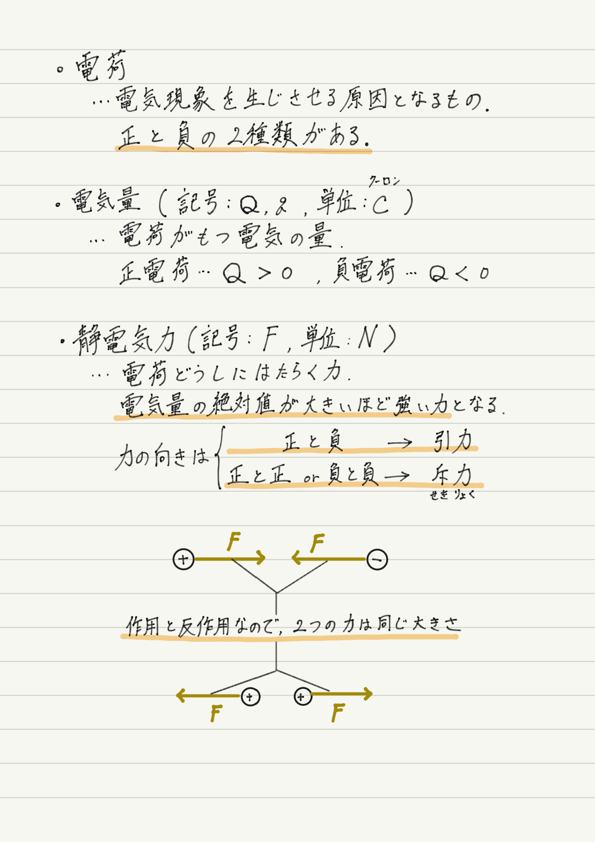 ・電荷
…電気現象を生じさせる原因となるもの.
正と負の2種類がある.
クーロン
・電気量(記号:Q,q,単位:C)
…電荷がもつ電気の量.
正電荷…Q>0,負電荷…Q<0
・静電気力(記号:F,単位:N)
…電荷どうしにはたらく力.
電気量の絶対値が大きいほど強い力となる.
力の向きは{正と負 → 引力
正と正 or 負と負 → 斥力
せきりょく
F F
+ -
作用と反作用なので,2つの力は同じ大きさ
+ +
F F